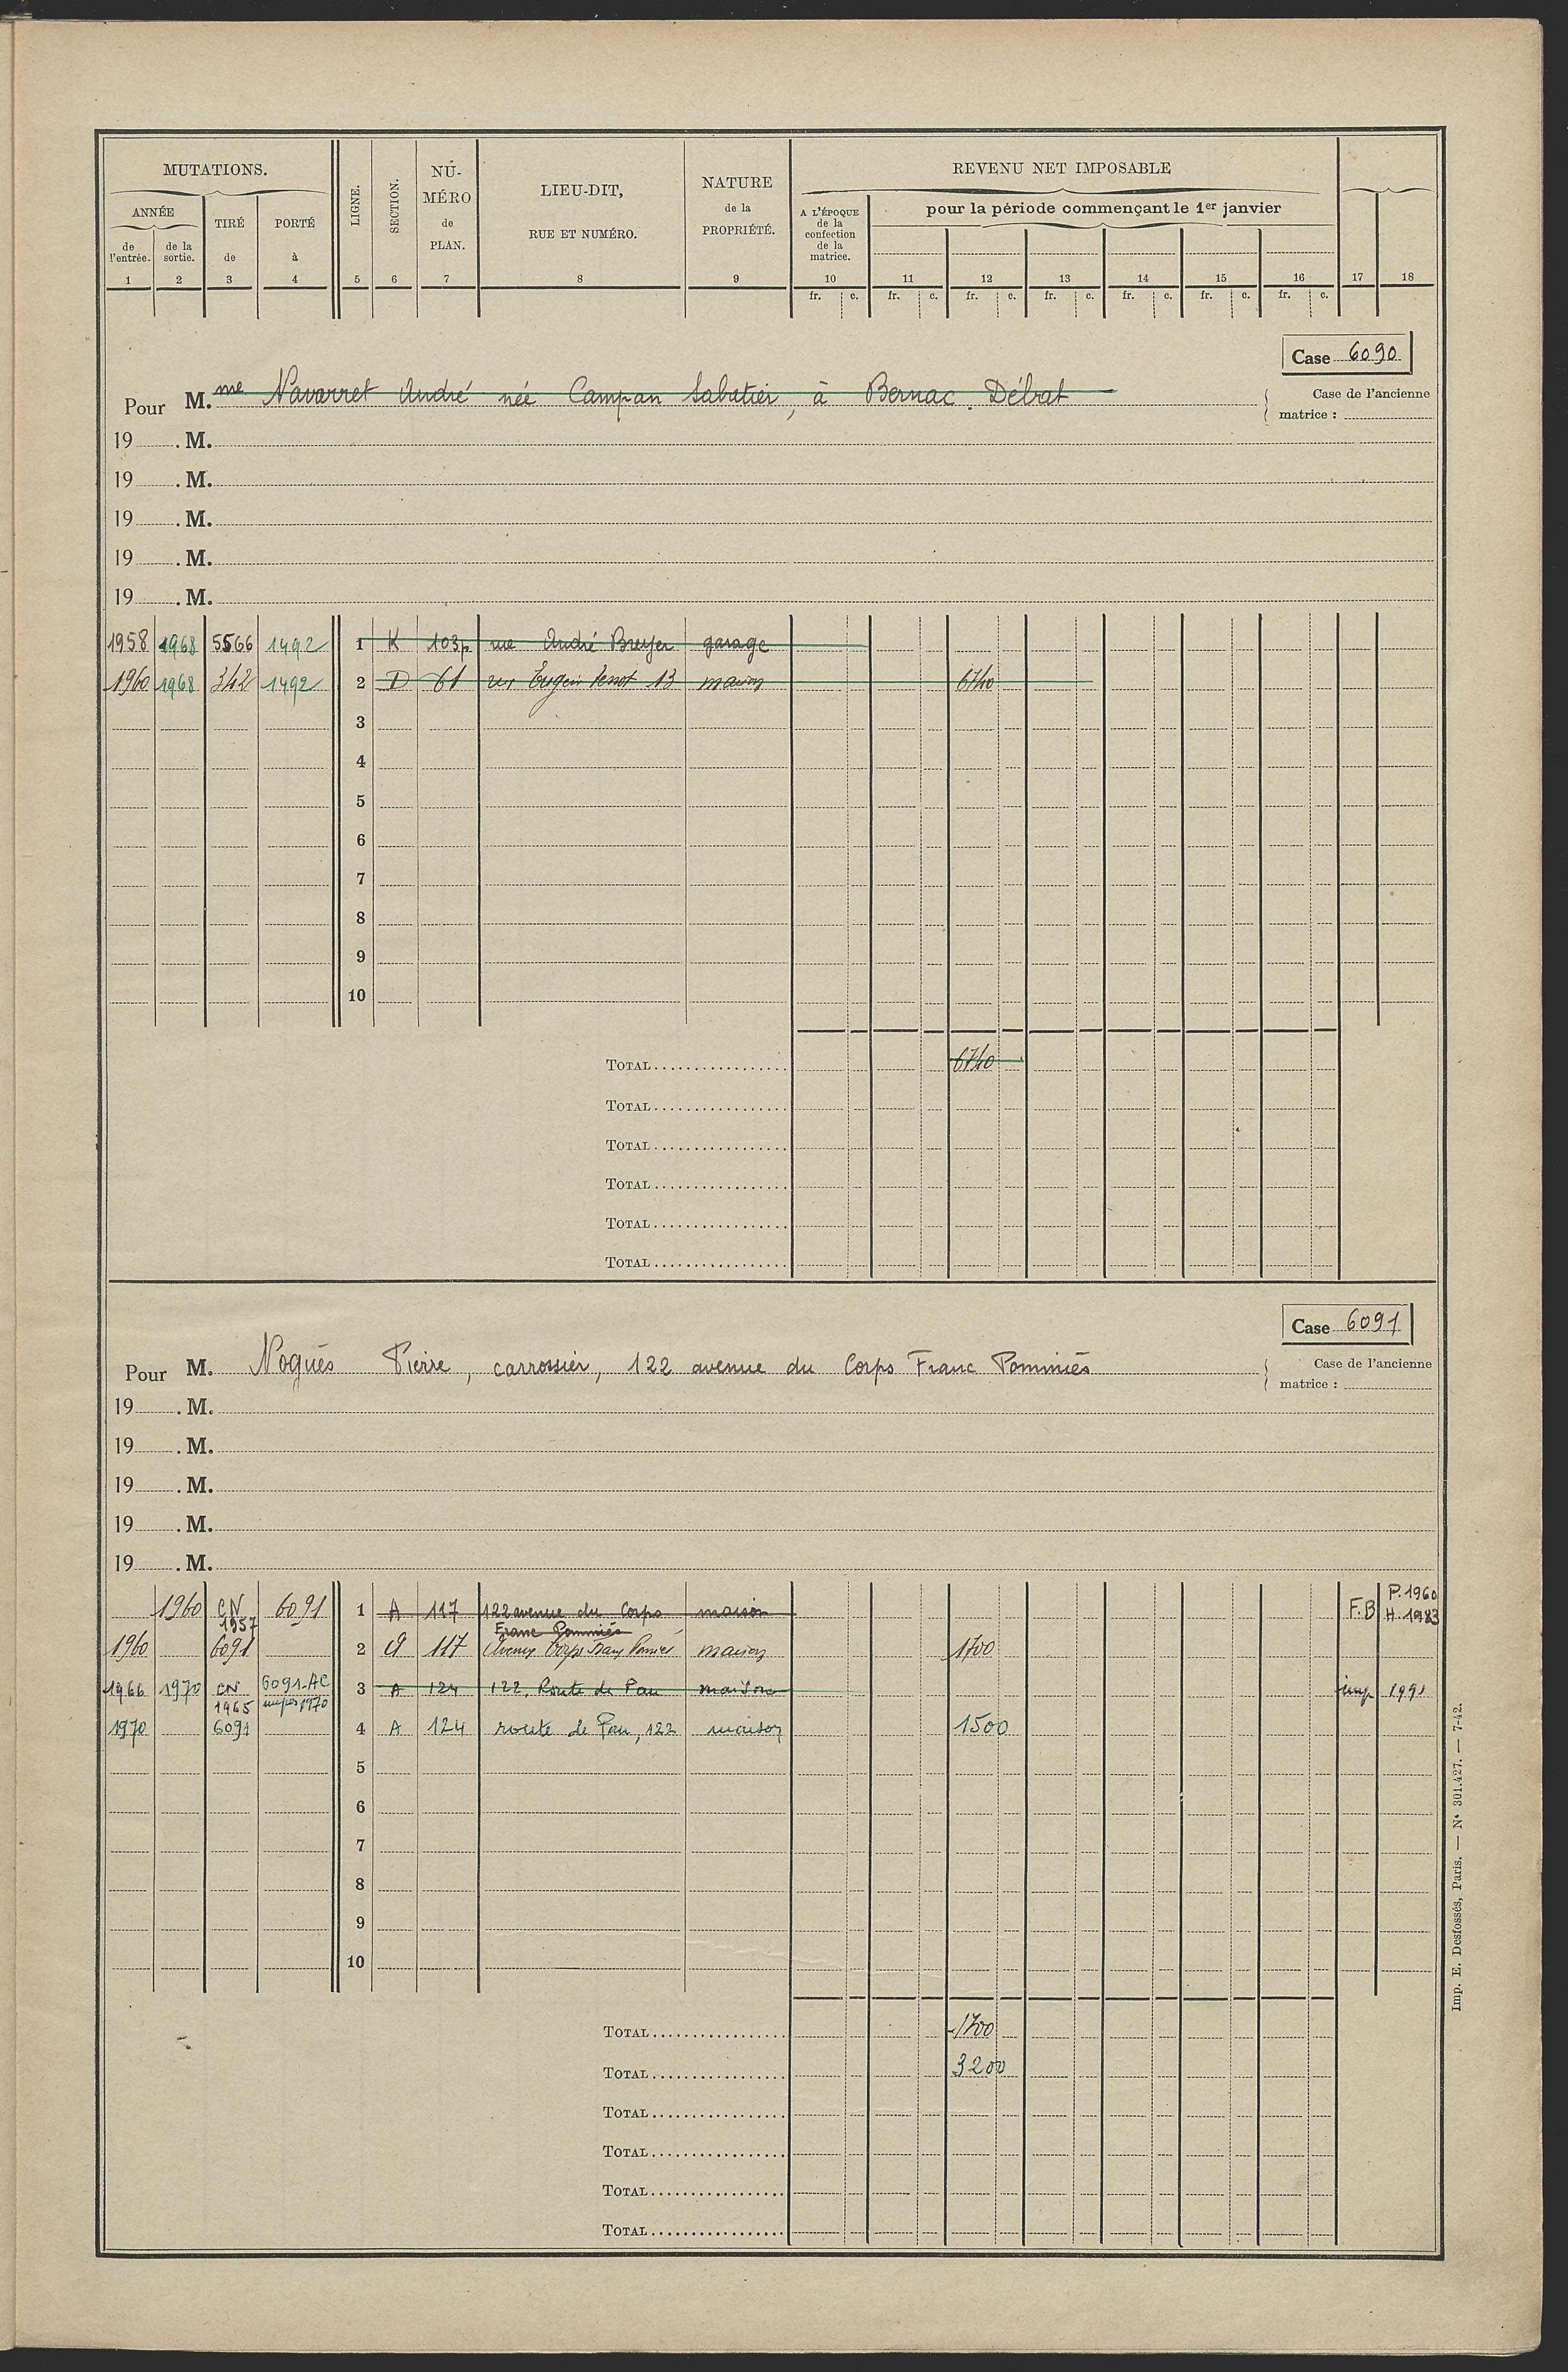 MUTATIONS.
ANNÉE
de l'entrée.
de la sortie.
TIRÉ de
PORTÉ à
LIGNE.
SECTION.
NUMÉRO de PLAN.
LIEU-DIT, RUE ET NUMÉRO.
NATURE de la PROPRIÉTÉ.
REVENU NET IMPOSABLE
A L'ÉPOQUE de la confection de la matrice.
pour la période commençant le 1er janvier
1 2 3 4 5 6 7 8 9 10 11 12 13 14 15 16 17 18
fr. c. fr. c. fr. c. fr. c. fr. c. fr. c. fr. c.
Case 6090
Pour M.me Navarret André née Campan Sabatier, à Bernac. Débat
Case de l'ancienne matrice :
19 . M.
19 . M.
19 . M.
19 . M.
19 . M.
1958 1968 5566 1492 1 K 103p rue André Breyer garage
1960 1968 342 1492 2 D 61 rue Eugène Tenot 13 maison 6740
3
4
5
6
7
8
9
10
TOTAL 6740
TOTAL
TOTAL
TOTAL
TOTAL
TOTAL
Case 6091
Pour M. Nogués Pierre, carrossier, 122 avenue du Corps Franc Pommiés
Case de l'ancienne matrice :
19 . M.
19 . M.
19 . M.
19 . M.
19 . M.
1960 CN 1957 6091 1 A 117 122 avenue du Corps Franc Pommiés maison F.B P.1960 H.1983
1960 6091 2 A 117 Avenue Corps Franc Pommies maison 1700
1966 1970 CN 1965 6091-AC 1970 3 A 124 122, Route de Pau maison imp 1991
1970 6091 4 A 124 route de Pau, 122 maison 1500
5
6
7
8
9
10
TOTAL 1700
TOTAL 3200
TOTAL
TOTAL
TOTAL
TOTAL
Imp. E. Desfossés, Paris. — N° 301.427. — 7-42.